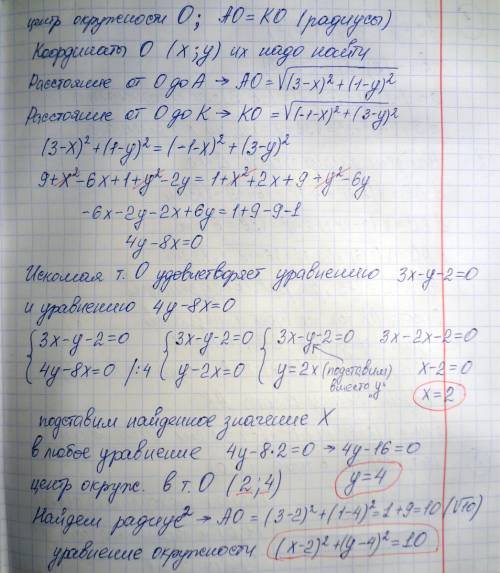 центр окружности O; AO=KO (радиусы)
Координаты O (x;y) их надо найти
Расстояние от O до A → AO=√(3-x)²+(1-y)²
Расстояние от O до K → KO=√(-1-x)²+(3-y)²
(3-x)²+(1-y)²=(-1-x)²+(3-y)²
9+x²-6x+1+y²-2y=1+x²+2x+9+y²-6y
-6x-2y-2x+6y=1+9-9-1
4y-8x=0
Искомая т. O удовлетворяет уравнению 3x-y-2=0
и уравнению 4y-8x=0
{3x-y-2=0 {3x-y-2=0 {3x-y-2=0 3x-2x-2=0
4y-8x=0 /:4 y-2x=0 y=2x (подставим вместо "y") x-2=0
x=2
подставим найденное значение x
в любое уравнение 4y-8·2=0 → 4y-16=0
центр окруж. в т. O (2;4) y=4
Найдем радиус² → AO=(3-2)²+(1-4)²=1+9=10 (√10)
уравнение окружности (x-2)²+(y-4)²=10